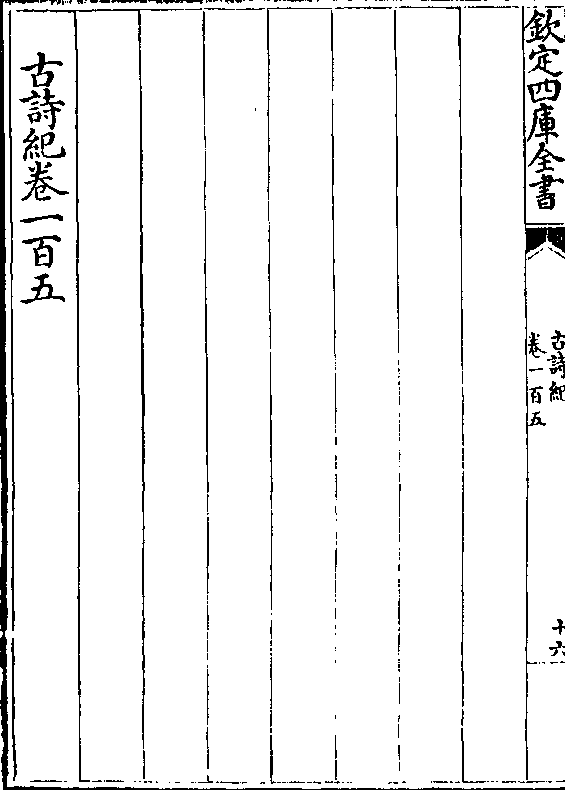 欽定四庫全書
古詩紀
卷一百五
十六
古詩紀卷一百五